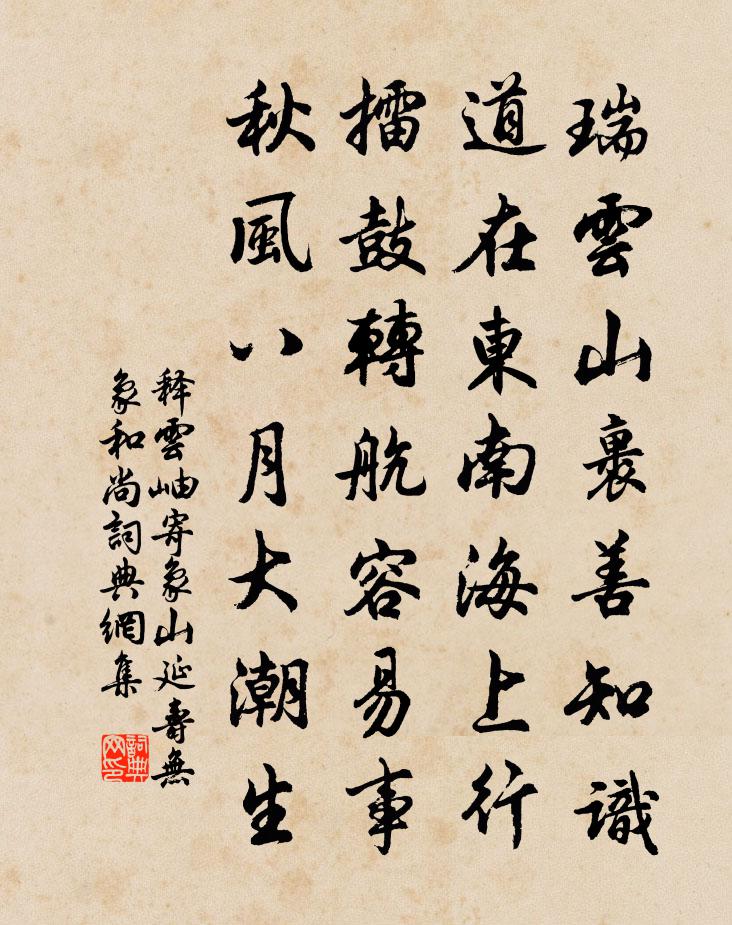 瑞雲山裏善知識
道在東南海上行
擂鼓轉航容易事
秋風八月大潮生
释雲岫寄象山延壽無
象和尚詞典網集
詞典网印